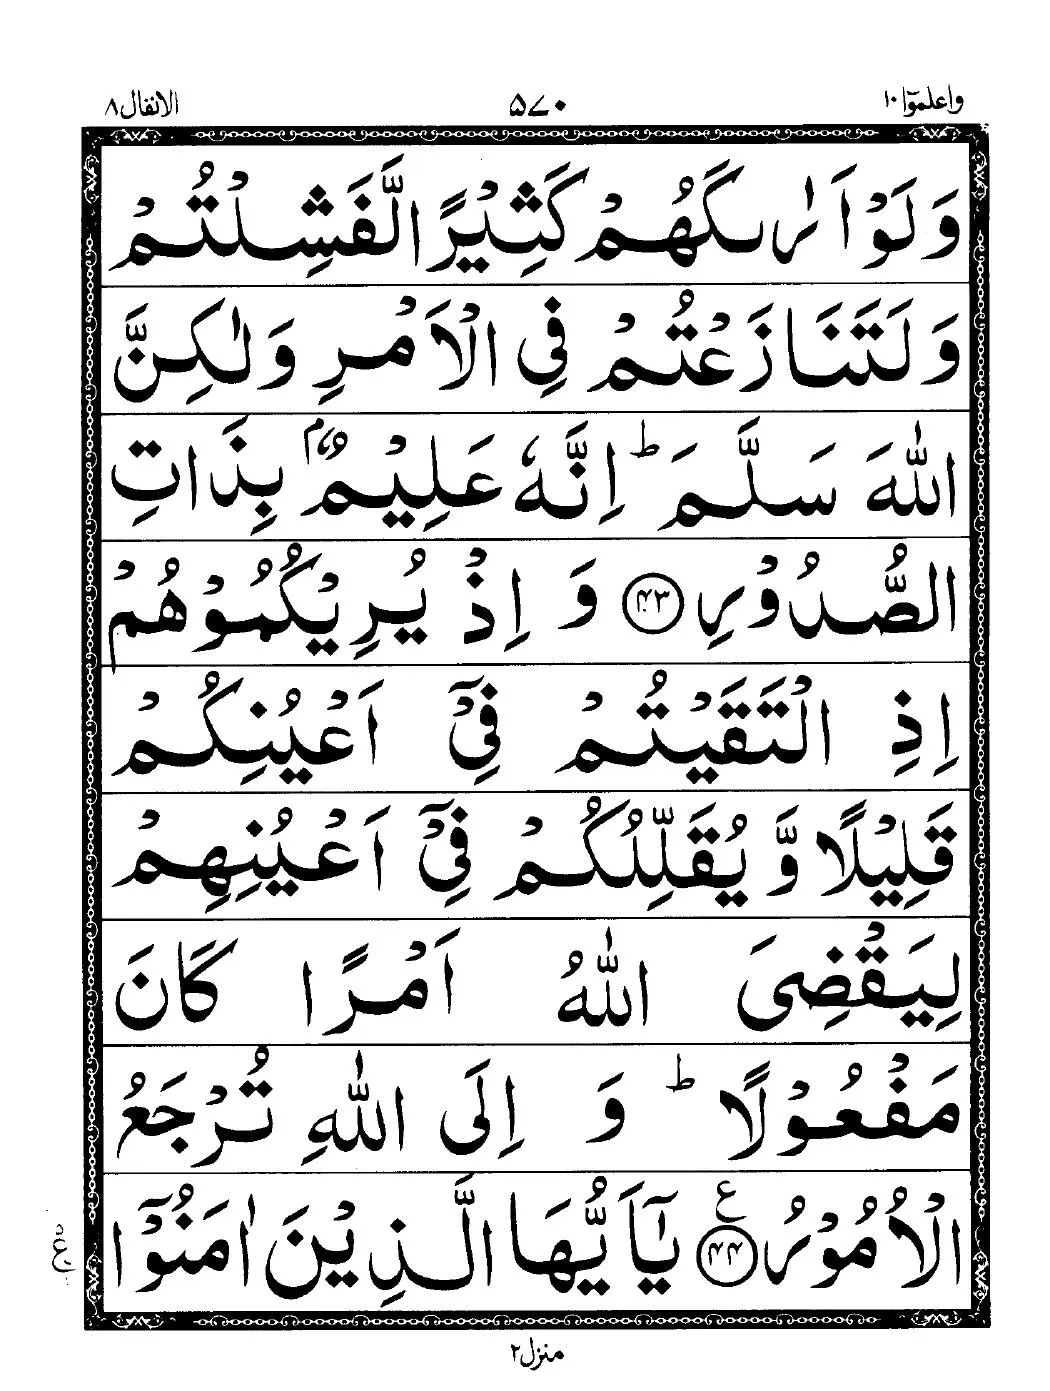 واعلموٓا ١٠ ۵۷۰ الانفال ٨
وَلَوْ اَرٰىكَهُمْ كَثِيْرًا لَّفَشِلْتُمْ
وَلَتَنَازَعْتُمْ فِي الْاَمْرِ وَلٰكِنَّ
اللّٰهَ سَلَّمَ ؕ اِنَّهٗ عَلِيْمٌۢ بِذَاتِ
الصُّدُوْرِ ﴿۴۳﴾ وَ اِذْ يُرِيْكُمُوْهُمْ
اِذِ الْتَقَيْتُمْ فِيْۤ اَعْيُنِكُمْ
قَلِيْلًا وَّ يُقَلِّلُكُمْ فِيْۤ اَعْيُنِهِمْ
لِيَقْضِيَ اللّٰهُ اَمْرًا كَانَ
مَفْعُوْلًا ؕ وَ اِلَى اللّٰهِ تُرْجَعُ
الْاُمُوْرُ ﴿۴۴﴾ ع يٰۤاَيُّهَا الَّذِيْنَ اٰمَنُوْۤا
منزل ٢